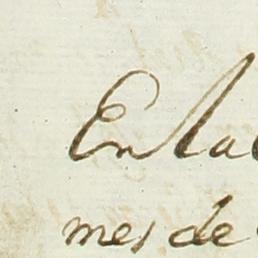 En la
mes de